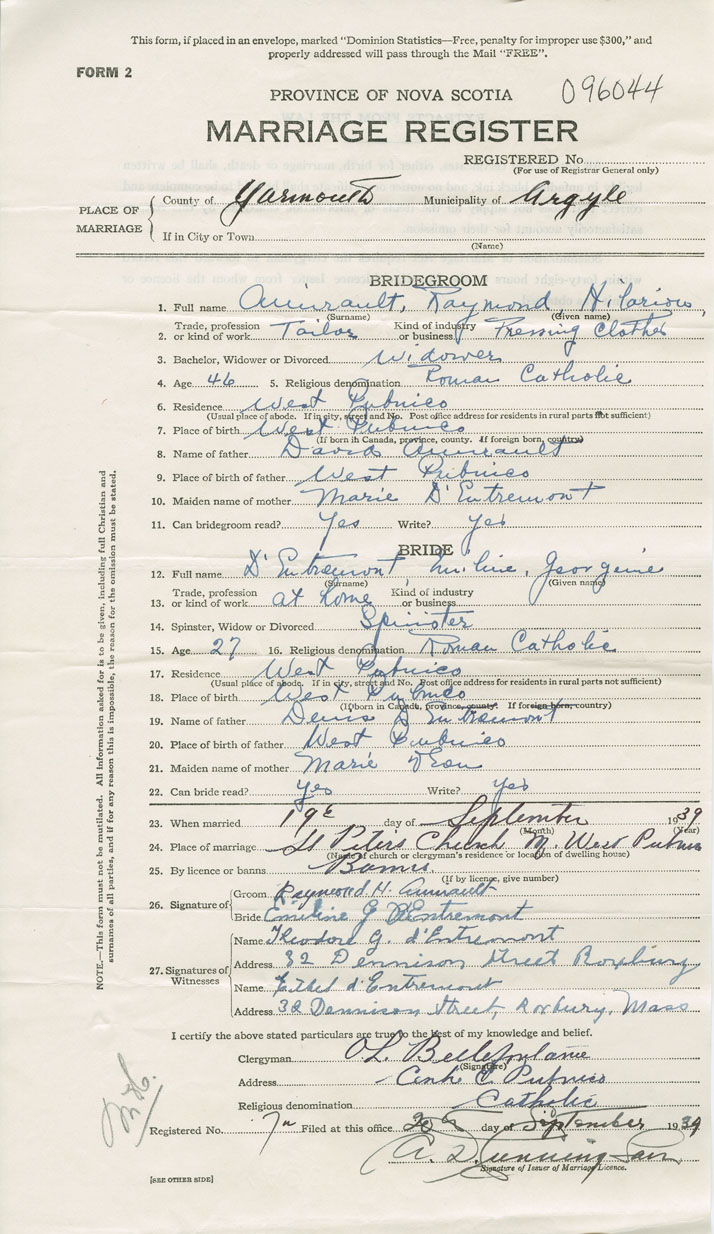 This form, if placed in an envelope, marked "Dominion Statistics—Free, penalty for improper use $300," and
properly addressed will pass through the Mail "FREE".
FORM 2
096044
PROVINCE OF NOVA SCOTIA
MARRIAGE REGISTER
REGISTERED No.
(For use of Registrar General only)
PLACE OF MARRIAGE
County of Yarmouth Municipality of Argyle
If in City or Town
(Name)
BRIDEGROOM
1. Full name Amirault, Raymond, Hilarion,
(Surname) (Given name)
2. Trade, profession or kind of work Tailor Kind of industry or business Pressing Clothes
3. Bachelor, Widower or Divorced Widower
4. Age 46 5. Religious denomination Roman Catholic
6. Residence West Pubnico
(Usual place of abode. If in city, street and No. Post office address for residents in rural parts not sufficient)
7. Place of birth West Pubnico
(If born in Canada, province, county. If foreign born, country)
8. Name of father David Amirault
9. Place of birth of father West Pubnico
10. Maiden name of mother Marie D'Entremont
11. Can bridegroom read? Yes Write? Yes
BRIDE
12. Full name D'Entremont, Georgine
(Surname) (Given name)
13. Trade, profession or kind of work at home Kind of industry or business
14. Spinster, Widow or Divorced Spinster
15. Age 27 16. Religious denomination Roman Catholic
17. Residence West Pubnico
(Usual place of abode. If in city, street and No. Post office address for residents in rural parts not sufficient)
18. Place of birth West Pubnico
(If born in Canada, province, county. If foreign born, country)
19. Name of father Denis D'Entremont
20. Place of birth of father West Pubnico
21. Maiden name of mother Marie
22. Can bride read? Yes Write? Yes
23. When married 19 day of September 1939
(Month) (Year)
24. Place of marriage St Peter's Church M. West
(Name of church or clergyman's residence or location of dwelling house)
25. By licence or banns Banns
(If by licence, give number)
26. Signature of
Groom Raymond H. Amirault
Bride Emiline G D'Entremont
27. Signatures of Witnesses
Name Theodore G. d'Entremont
Address 32 Dennison Street Roxbury
Name Ethel d'Entremont
Address 32 Dennison Street, Roxbury, Mass
I certify the above stated particulars are true to the best of my knowledge and belief.
Clergyman
(Signature)
Address Pubnico
Religious denomination Catholic
Registered No. Filed at this office day of September 1939
Signature of Issuer of Marriage Licence.
[SEE OTHER SIDE]
NOTE.—This form must not be mutilated. All information asked for is to be given, including full Christian and
surnames of all parties, and if for any reason this is impossible, the reason for the omission must be stated.